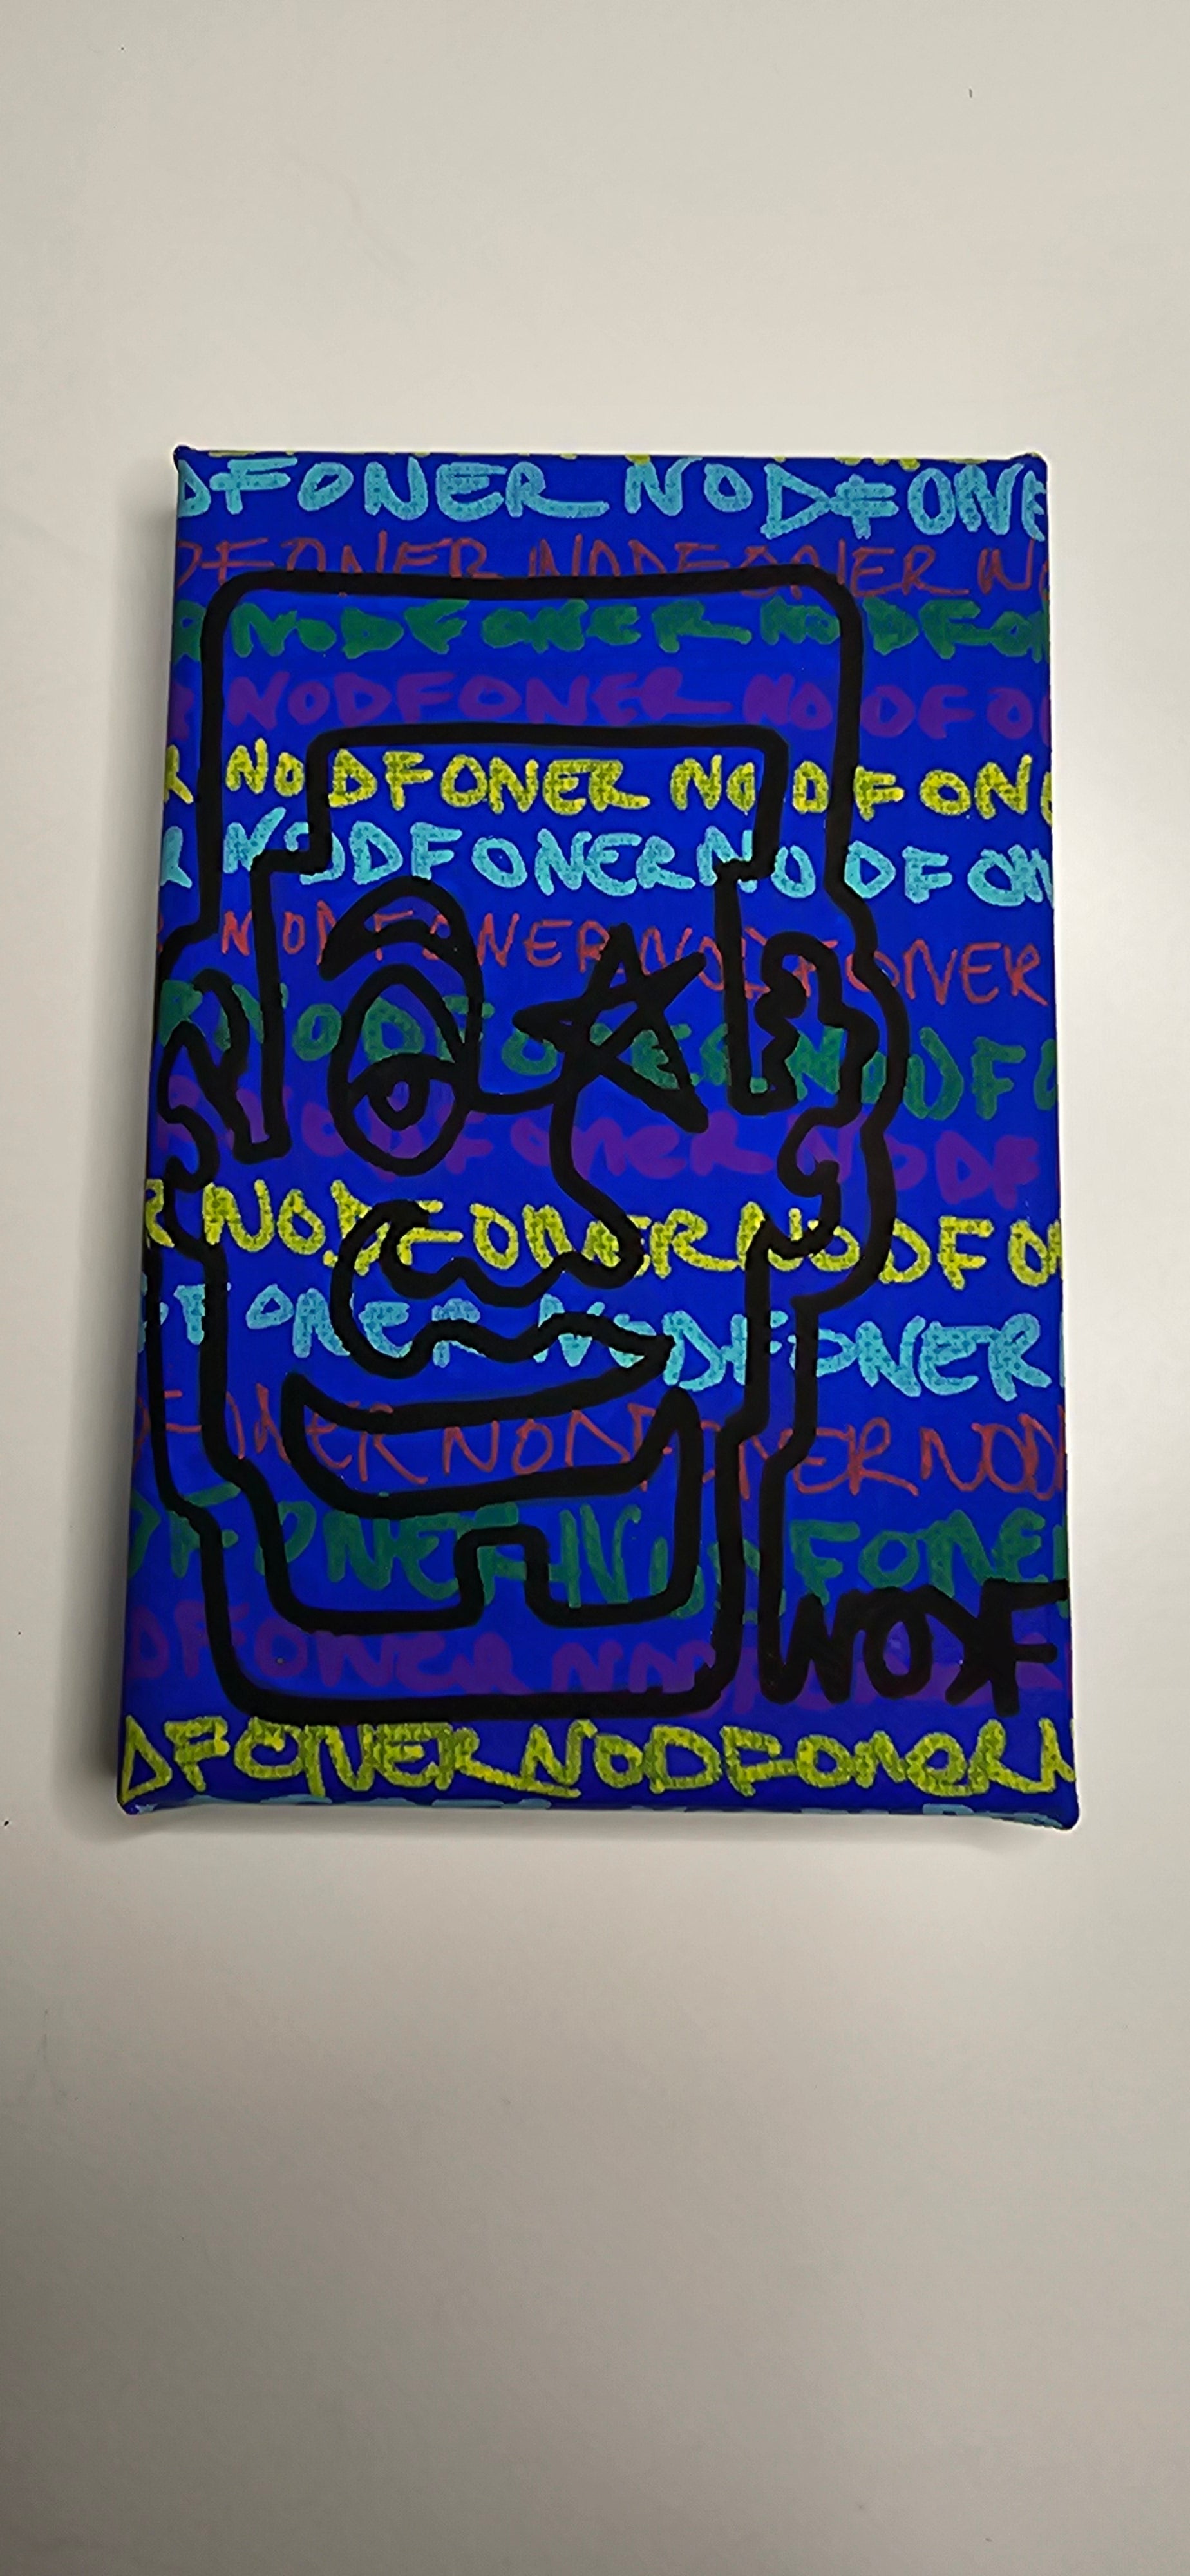 DFONER NODFONE
DFONER NODFONER N
NODFONER NODFO
NODFONER NODFO
R NODFONER NODFONE
R NODFONERNODFON
NODFONER NODFONER
NODFONER NODFO
NODFONER NODF
R NODFONER NODFO
FONER NODFONER
FONER NODFONER NOD
DFONER NODFONER
DFONER
WOF
DFONERNODFONERN